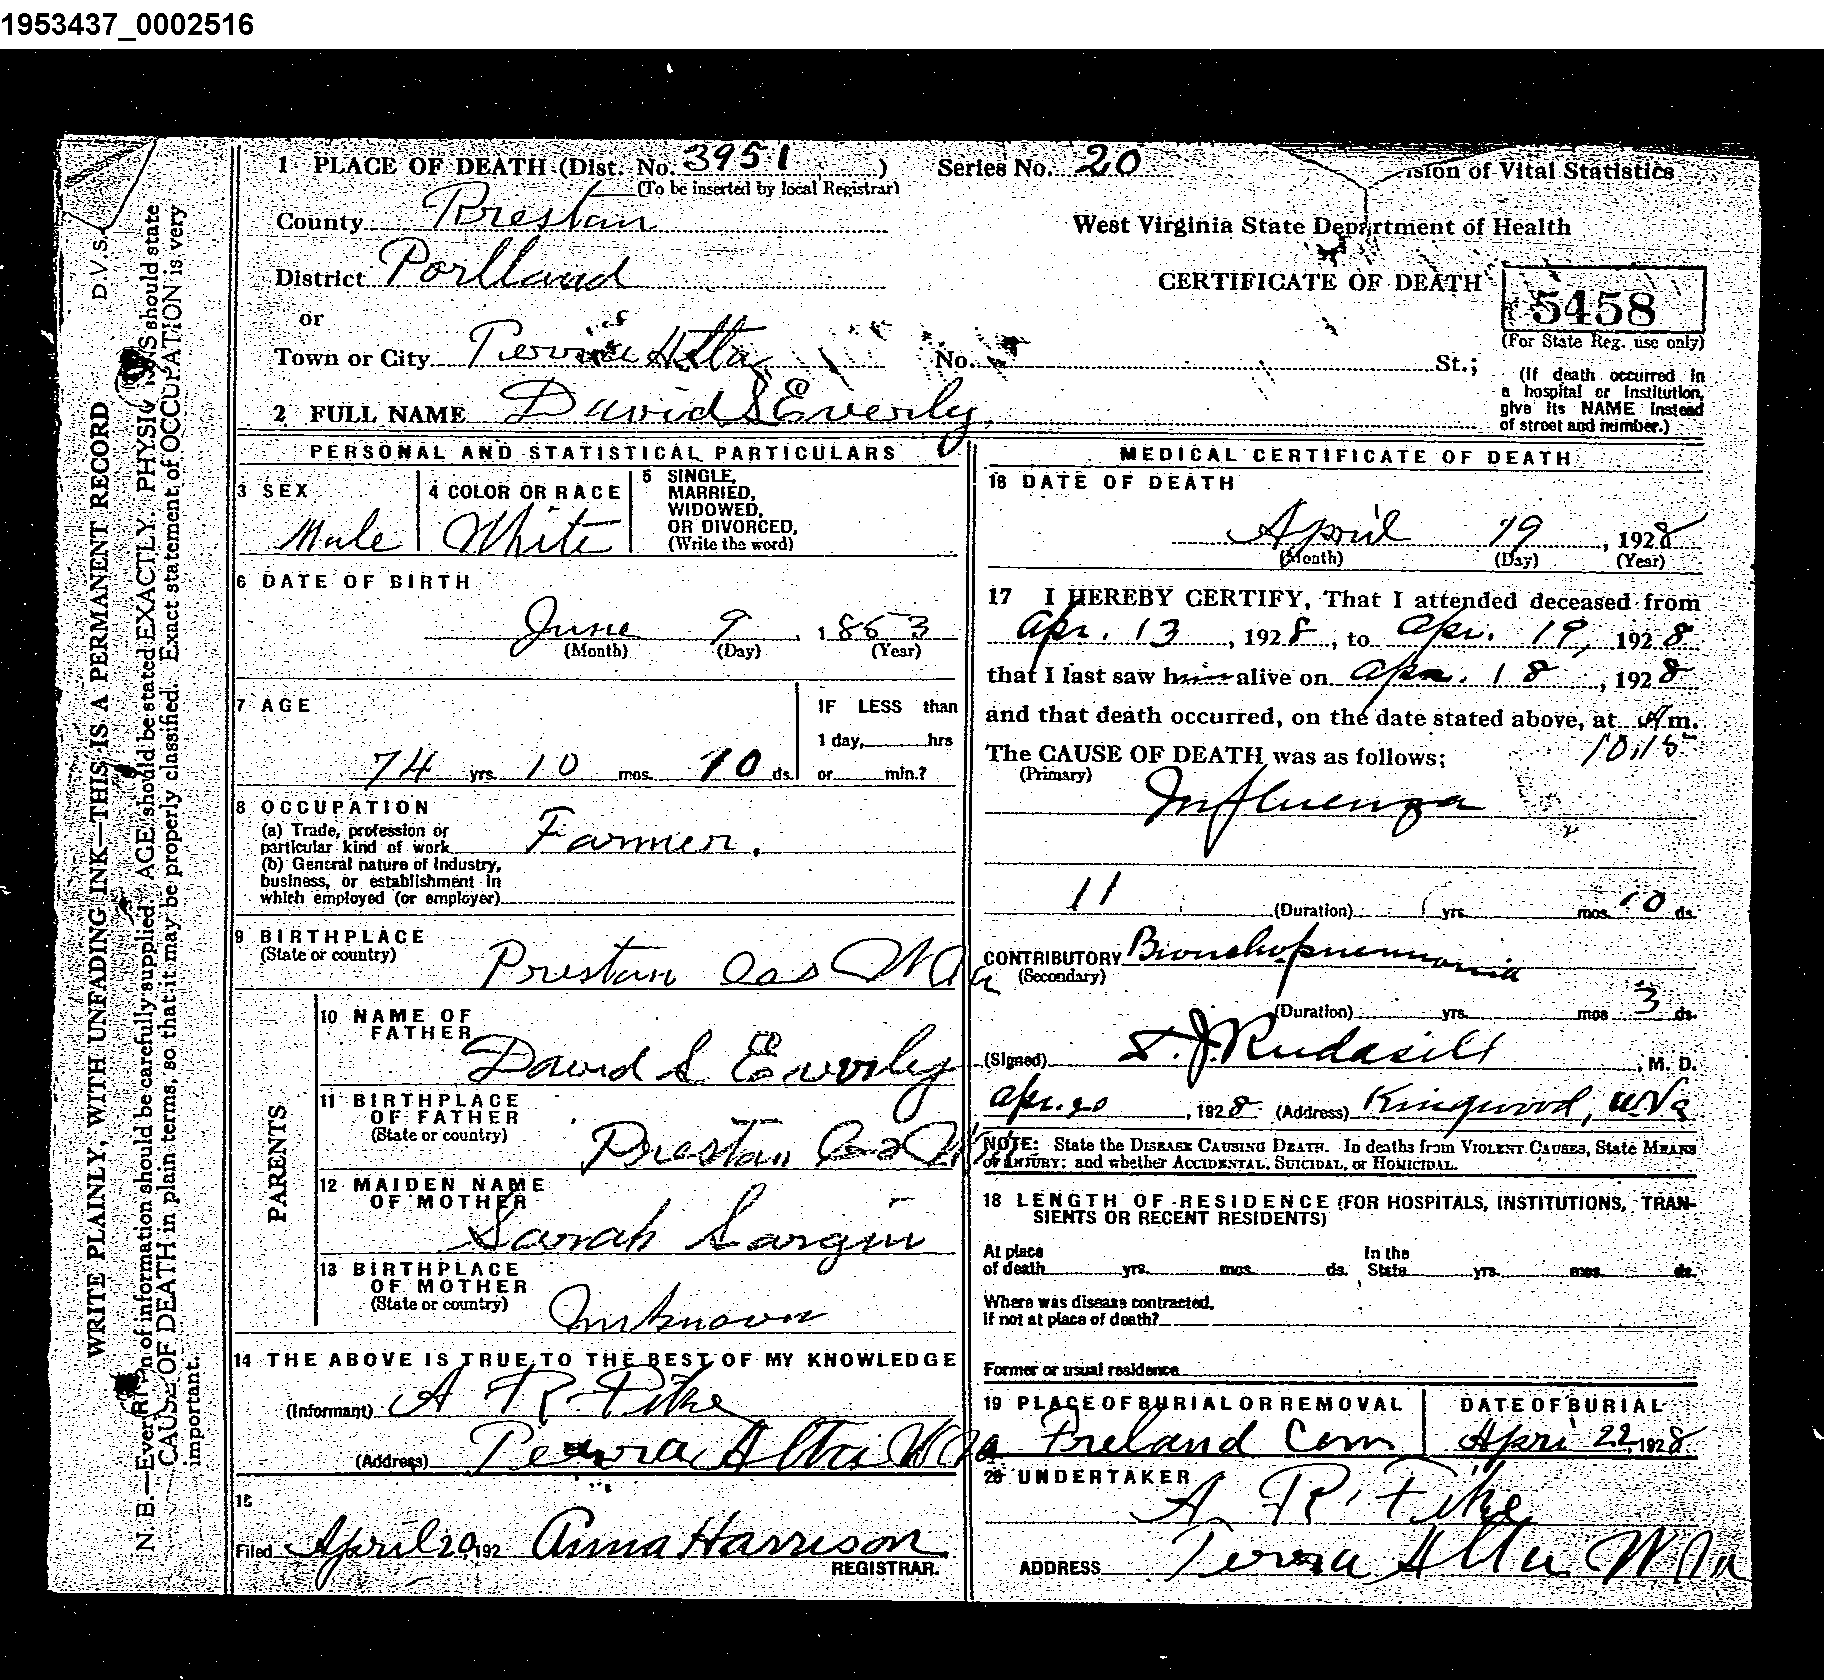 1953437_0002516
1 PLACE OF DEATH (Dist. No. 3951 ) Series No. 20
(To be inserted by local Registrar)
ision of Vital Statistics
County Preston
West Virginia State Department of Health
District Portland
CERTIFICATE OF DEATH
5458
(For State Reg. use only)
or
Town or City Terra Alta No. St.;
(If death occurred in
a hospital or institution,
give its NAME instead
of street and number.)
2 FULL NAME David S Everly
PERSONAL AND STATISTICAL PARTICULARS
3 SEX
Male
4 COLOR OR RACE
White
5 SINGLE,
MARRIED,
WIDOWED,
OR DIVORCED,
(Write the word)
6 DATE OF BIRTH
June 9, 1853
(Month) (Day) (Year)
7 AGE
74 yrs. 10 mos. 10 ds.
IF LESS than
1 day, hrs
or min.?
8 OCCUPATION
(a) Trade, profession or
particular kind of work Farmer.
(b) General nature of industry,
business, or establishment in
which employed (or employer)
9 BIRTHPLACE
(State or country)
Preston Co W Va
PARENTS
10 NAME OF
FATHER
David S Everly
11 BIRTHPLACE
OF FATHER
(State or country)
Preston Co W Va
12 MAIDEN NAME
OF MOTHER
Sarah Sargin
13 BIRTHPLACE
OF MOTHER
(State or country)
Unknown
14 THE ABOVE IS TRUE TO THE BEST OF MY KNOWLEDGE
(Informant) A R Fike
(Address) Terra Alta W Va
15
Filed April 20, 192 Anna Harrison
REGISTRAR.
MEDICAL CERTIFICATE OF DEATH
16 DATE OF DEATH
April 19, 1928
(Month) (Day) (Year)
17 I HEREBY CERTIFY, That I attended deceased from
Apr. 13, 1928, to Apr. 19, 1928
that I last saw him alive on Apr. 18, 1928
and that death occurred, on the date stated above, at A m.
10:15
The CAUSE OF DEATH was as follows:
(Primary)
Influenza
11 (Duration) yrs. mos. 10 ds.
CONTRIBUTORY Bronchopneumonia
(Secondary)
(Duration) yrs. mos. 3 ds.
(Signed) S. J. Rudasill, M. D.
Apr. 20, 1928 (Address) Kingwood, W Va
NOTE: State the DISEASE CAUSING DEATH. In deaths from VIOLENT CAUSES, State MEANS
OF INJURY; and whether ACCIDENTAL, SUICIDAL, or HOMICIDAL.
18 LENGTH OF RESIDENCE (FOR HOSPITALS, INSTITUTIONS, TRAN-
SIENTS OR RECENT RESIDENTS)
At place
of death yrs. mos. ds.
In the
State yrs. mos. ds.
Where was disease contracted,
if not at place of death?
Former or usual residence
19 PLACE OF BURIAL OR REMOVAL
Freland Cem
DATE OF BURIAL
April 22, 1928
20 UNDERTAKER
A R Fike
ADDRESS Terra Alta W Va
D.V.S.
WRITE PLAINLY, WITH UNFADING INK—THIS IS A PERMANENT RECORD
N. B.—Every of information should be carefully supplied. AGE should be stated EXACTLY. PHYSIC NS should state
CAUSE OF DEATH in plain terms, so that it may be properly classified. Exact statement of OCCUPATION is very
important.